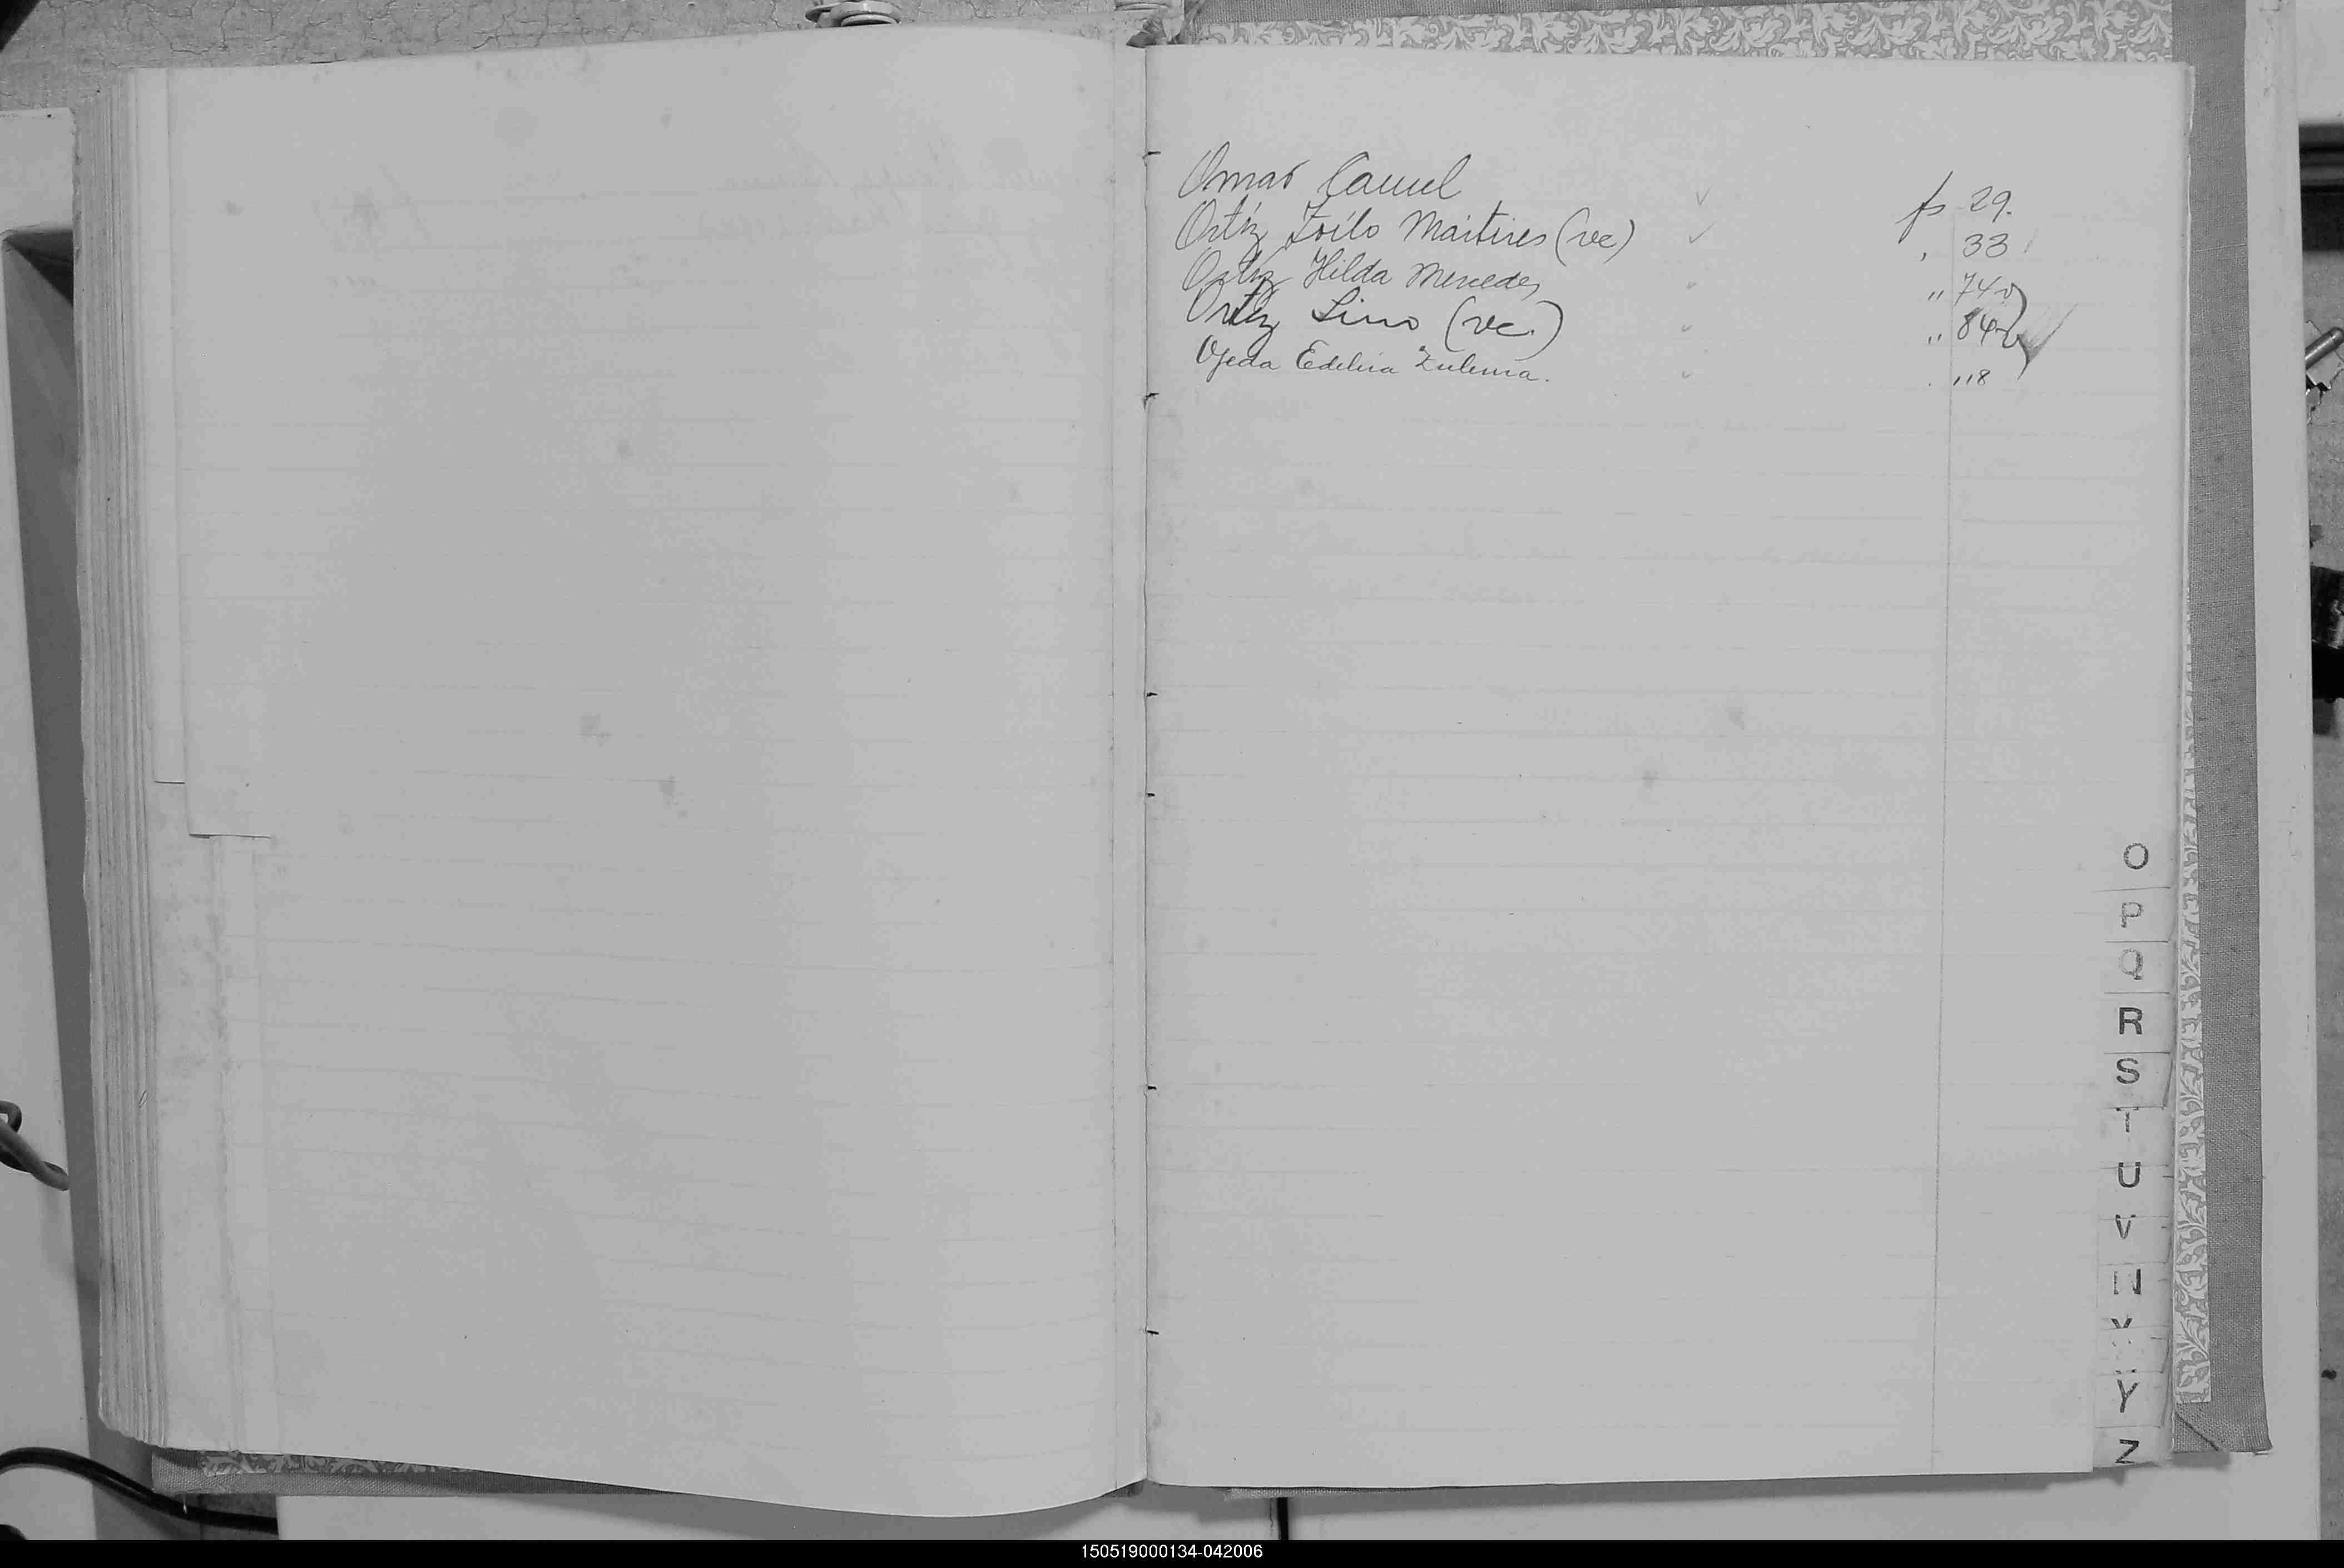 Omar Camel fs 29.
Ortíz Zoilo Mártires (vc) " 33
Ortíz Hilda Mercedes " 74 v
Ortíz Lino (vc.) " 84 v
Ojeda Edelvia Zulema. 118
O
P
Q
R
S
T
U
V
W
X
Y
Z
150519000134-042006